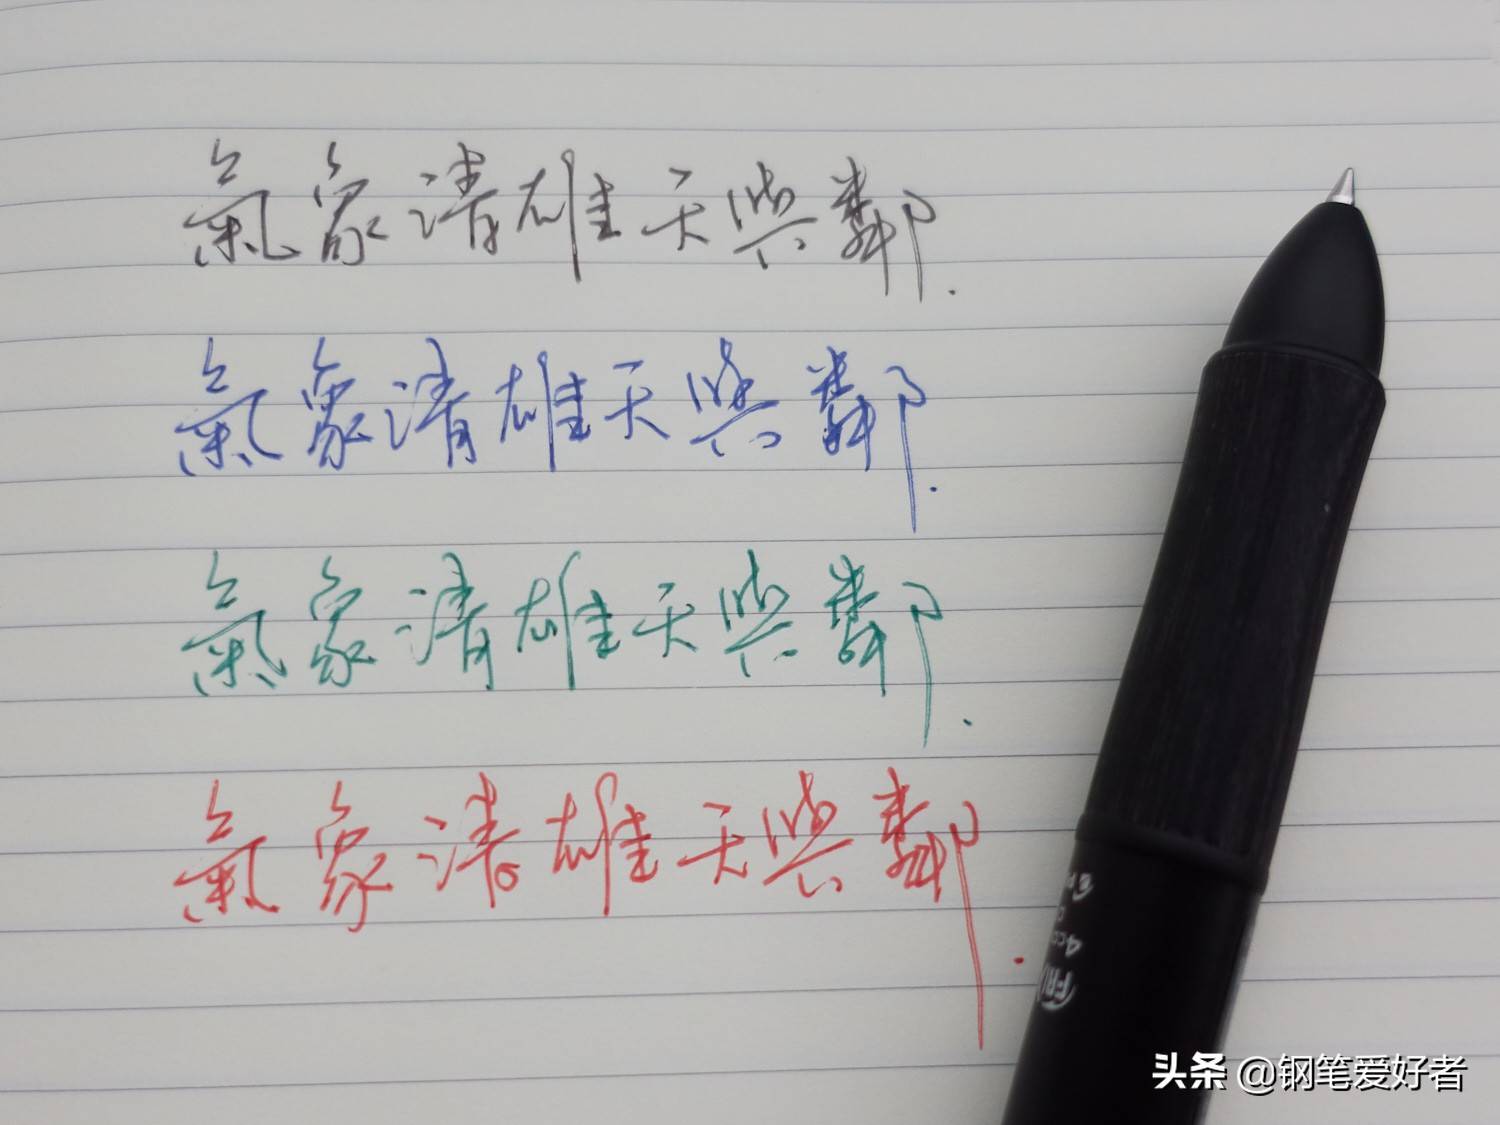 氣象清雄天與鄰.
氣象清雄天與鄰.
氣象清雄天與鄰.
氣象清雄天與鄰.
头条 @钢笔爱好者